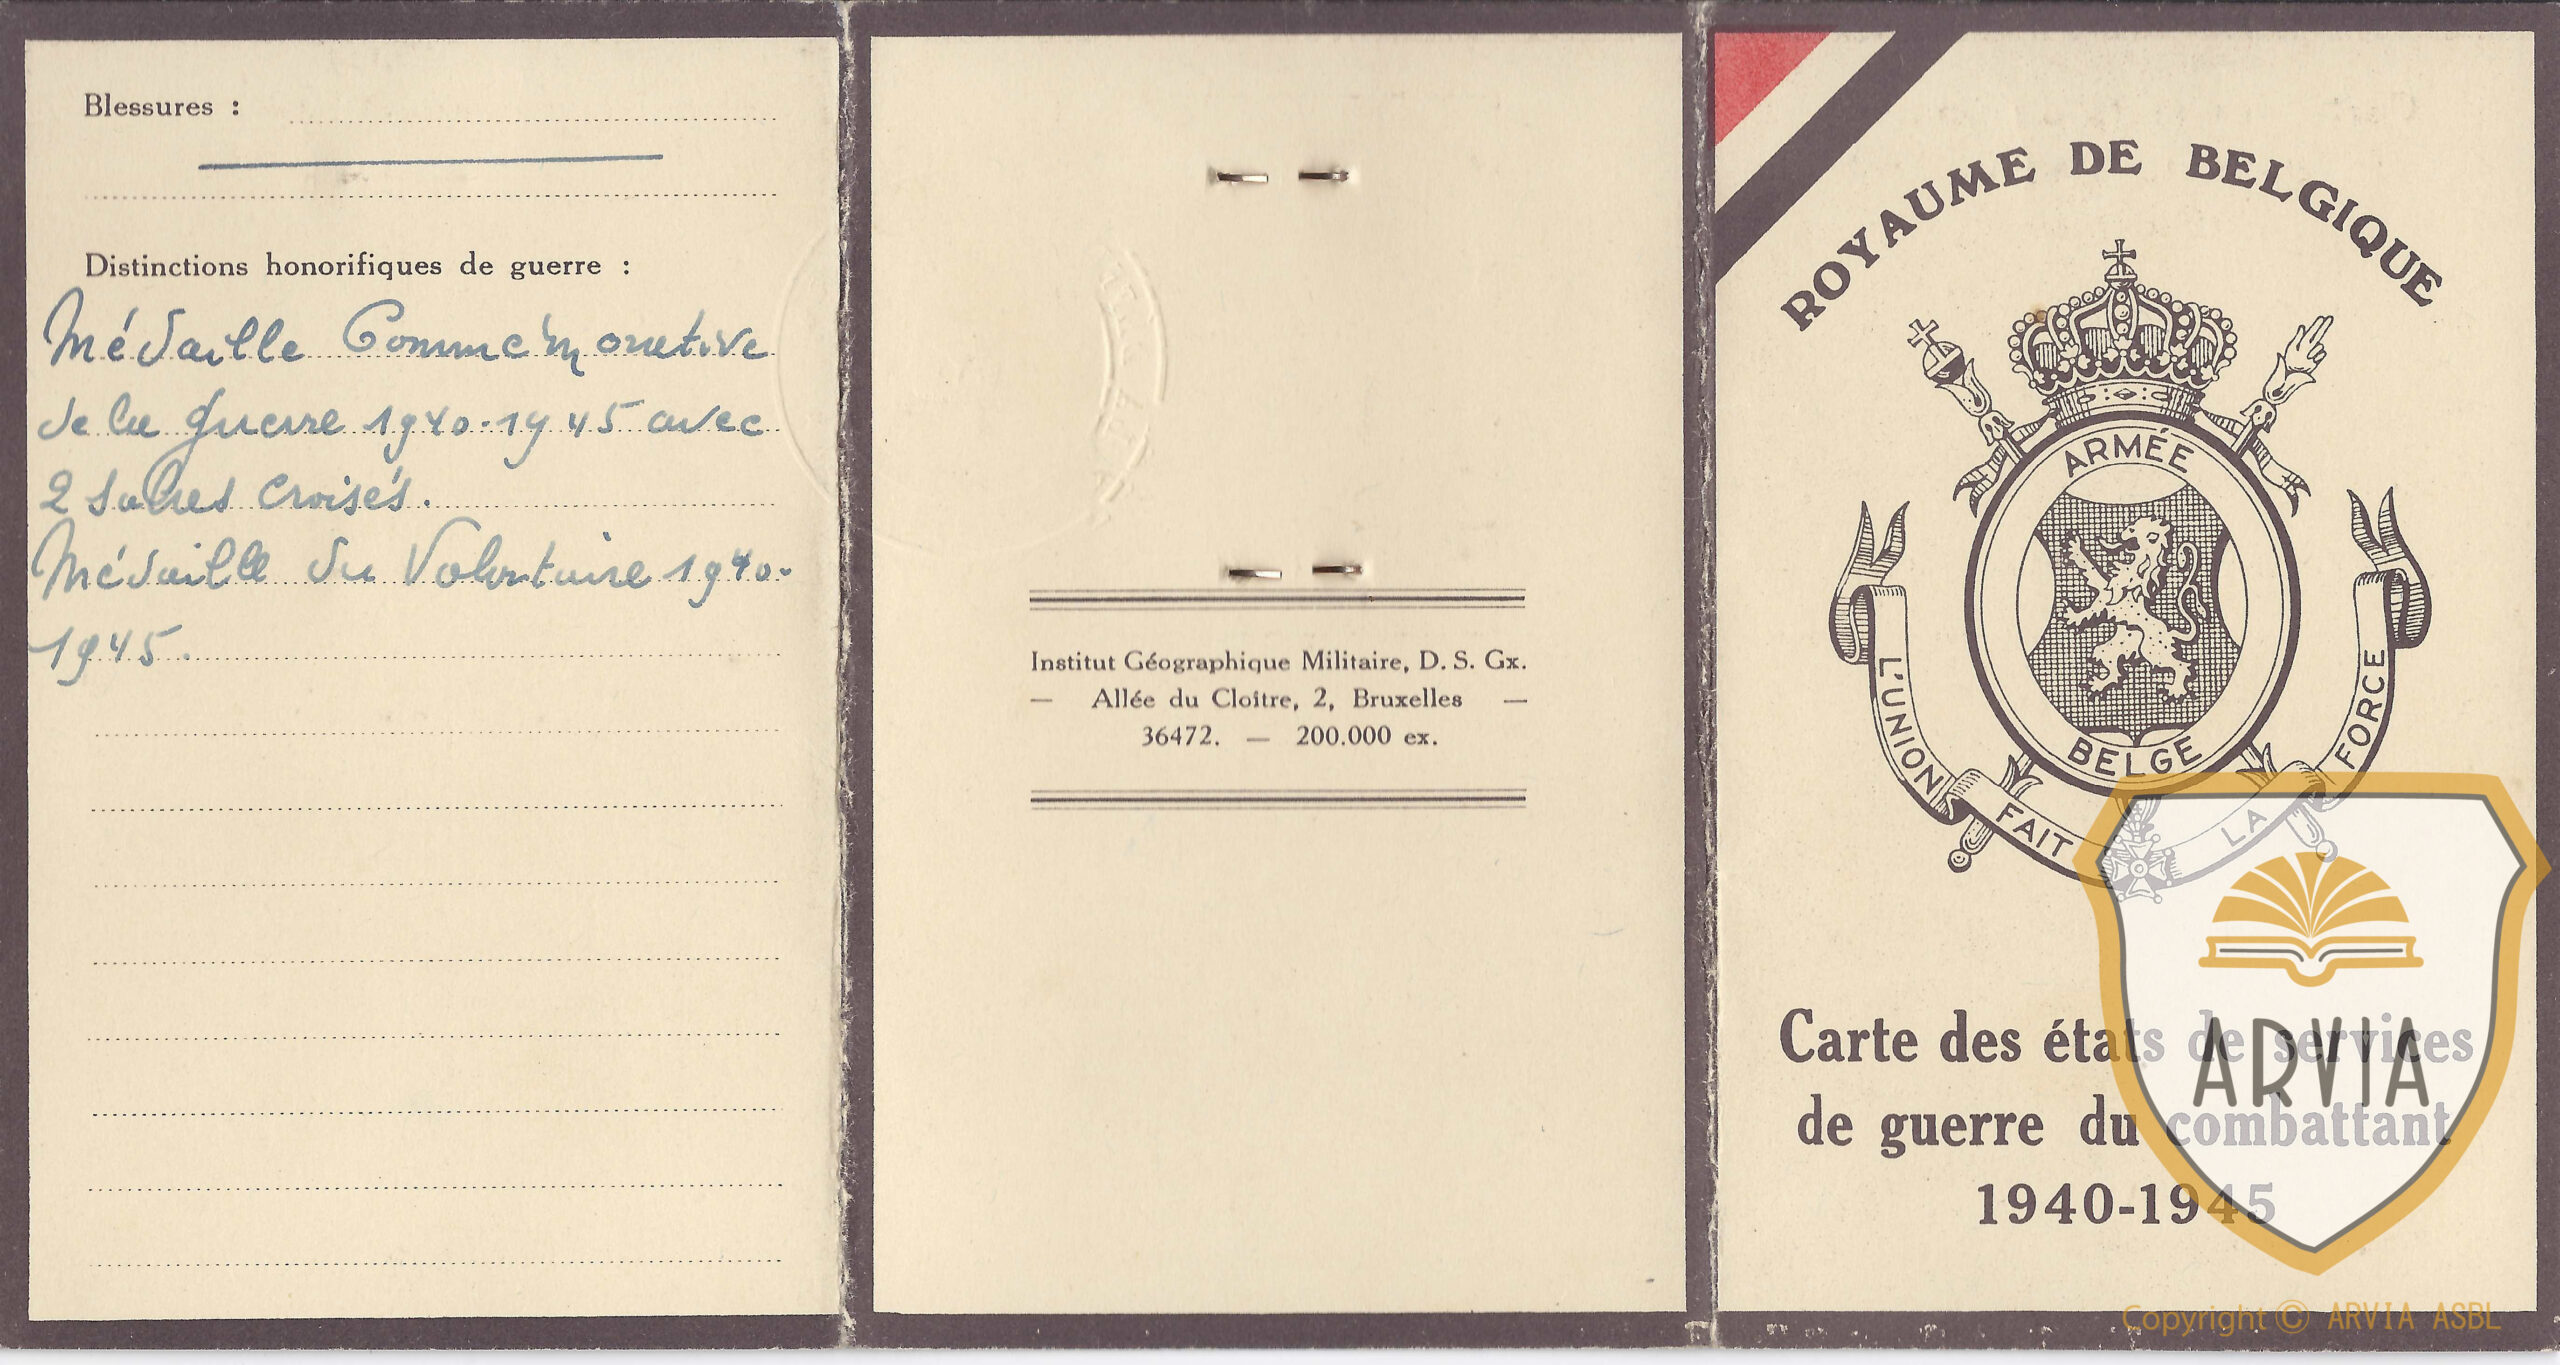 Blessures :
Distinctions honorifiques de guerre :
Médaille Commémorative
de la guerre 1940-1945 avec
2 sabres croisés.
Médaille du Volontaire 1940-
1945.
Institut Géographique Militaire, D. S. Gx.
— Allée du Cloître, 2, Bruxelles —
36472. — 200.000 ex.
ROYAUME DE BELGIQUE
ARMÉE
BELGE
L'UNION FAIT LA FORCE
Carte des états de services
de guerre du combattant
1940-1945
ARVIA
Copyright © ARVIA ASBL